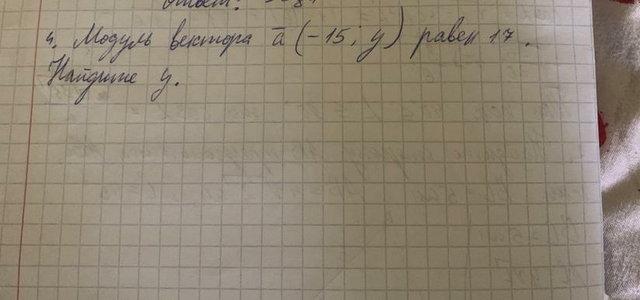 Ответ:
4. Модуль вектора a̅ (-15; y) равен 17.
Найдите y.